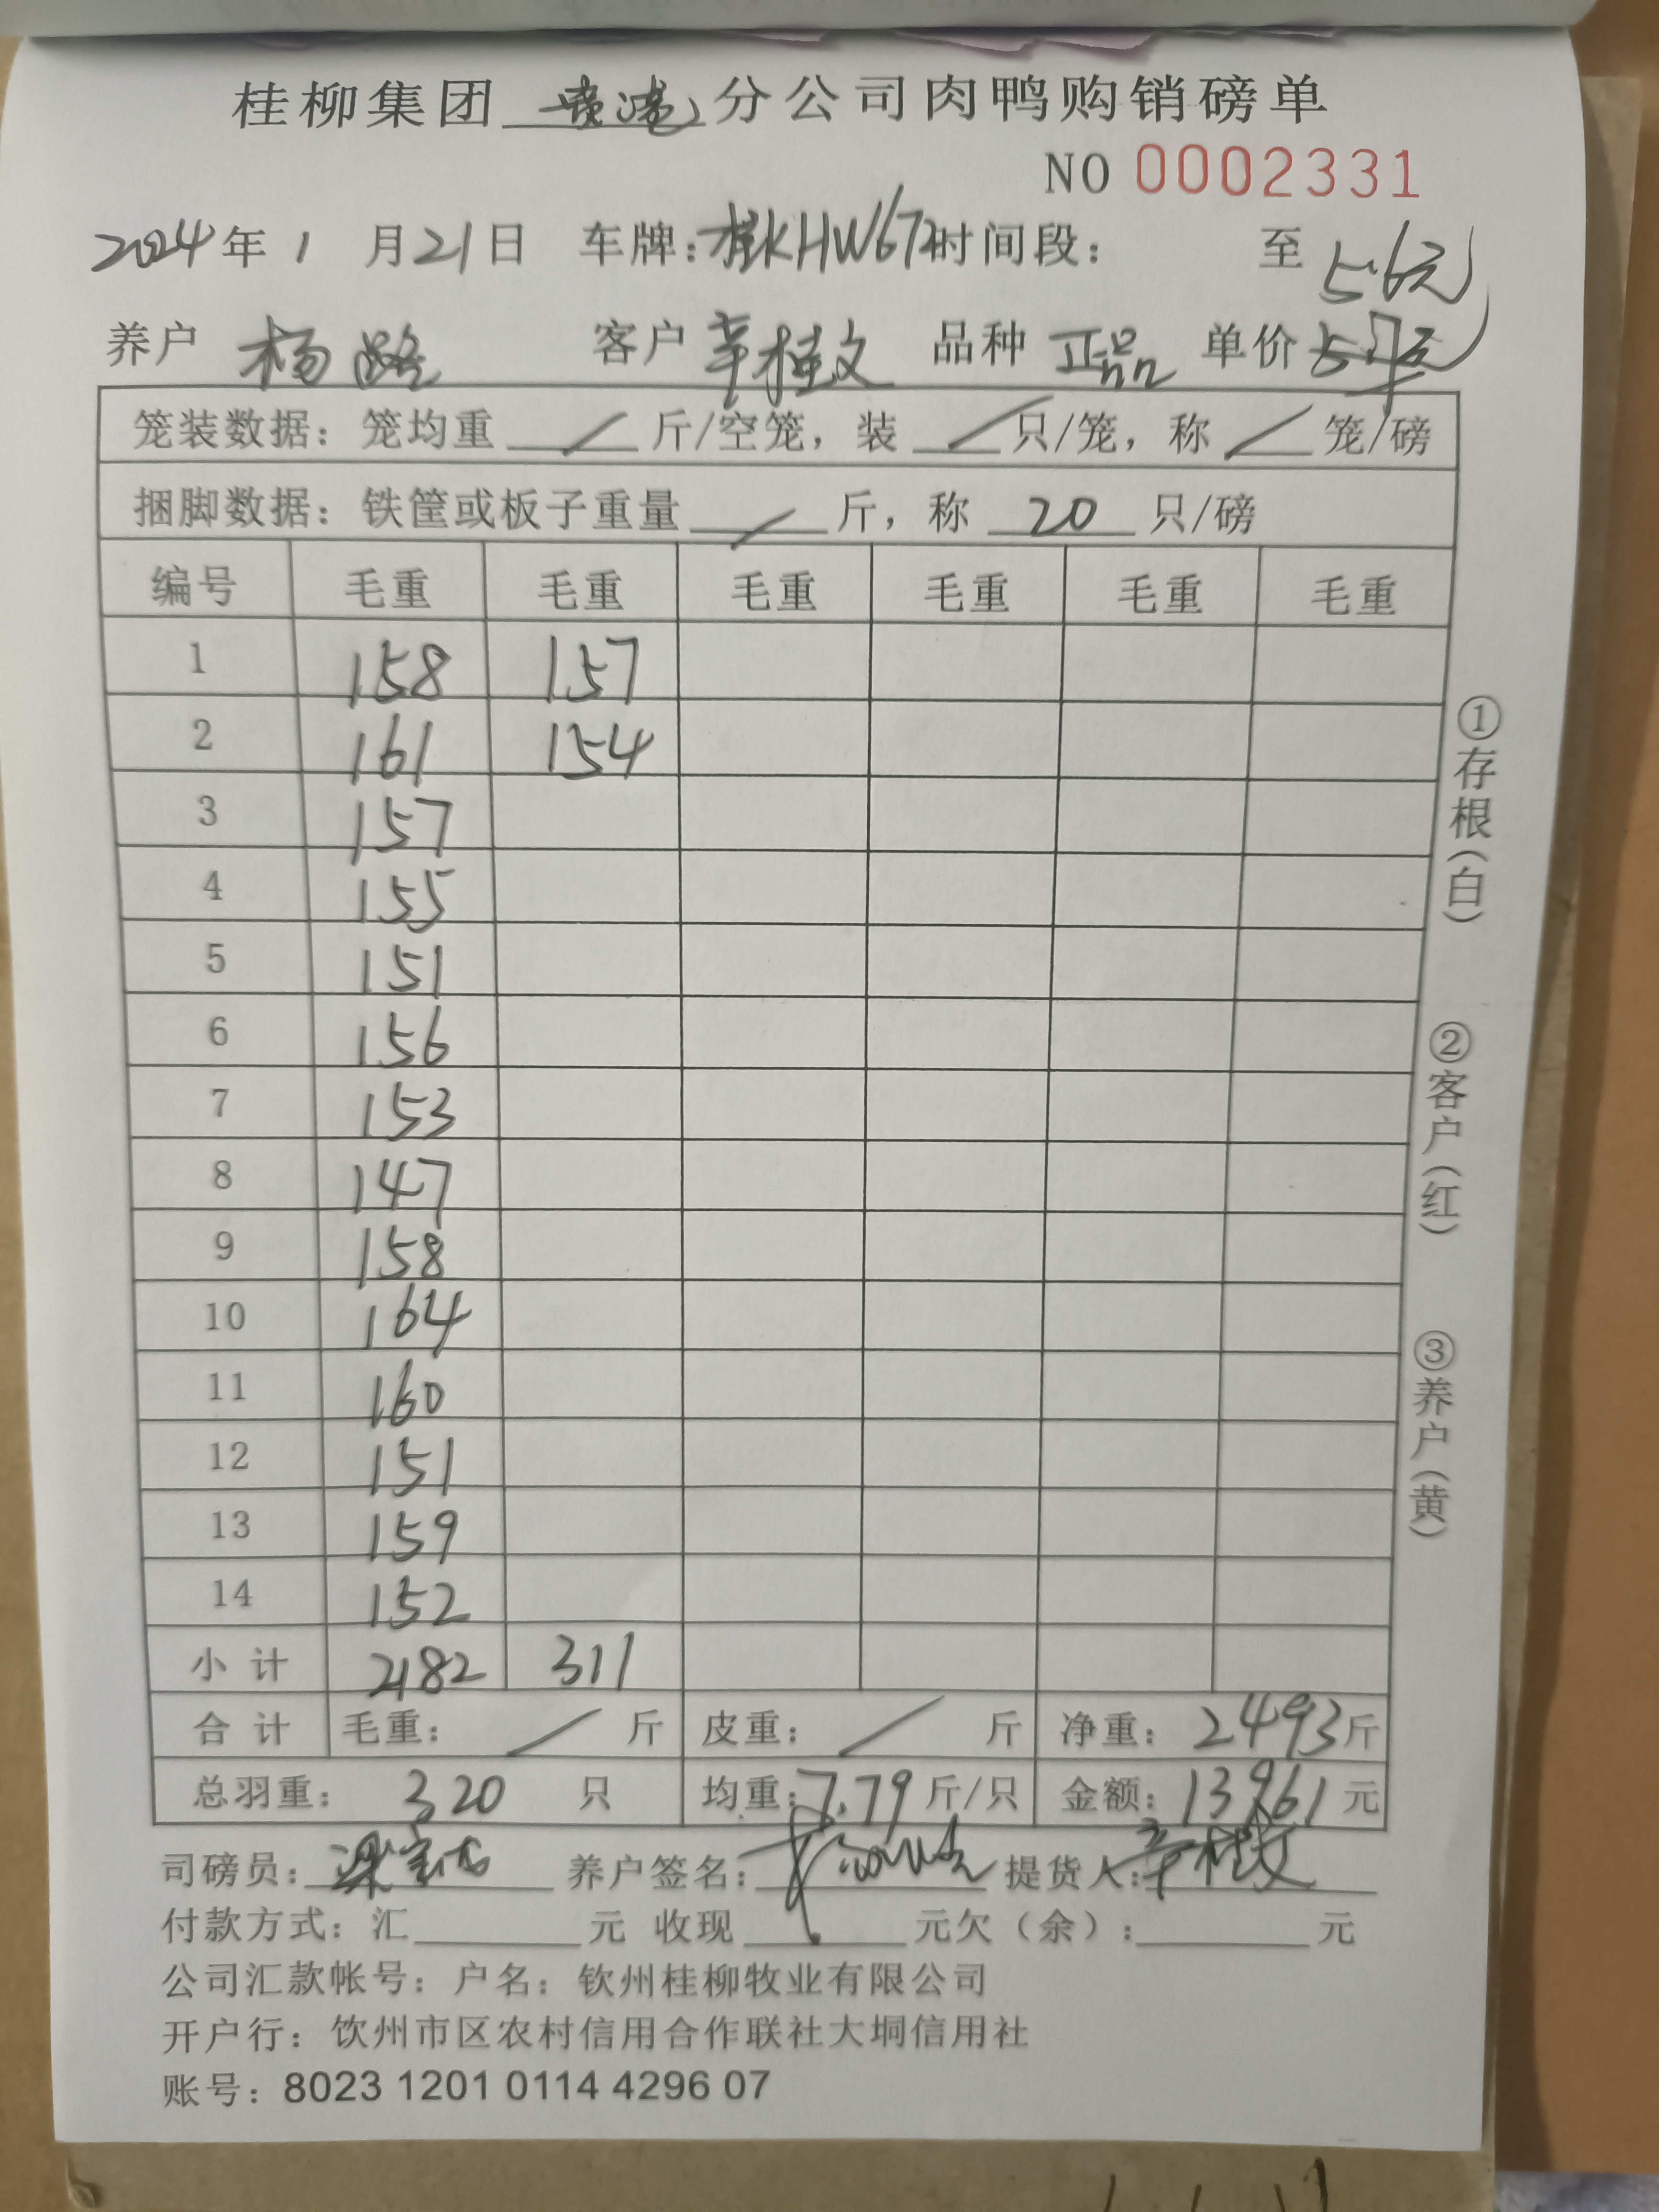 桂柳集团 黄港 分公司肉鸭购销磅单
NO 0002331
2024年 1 月21日 车牌：桂KHW672 时间段： 至 5.6元
养户 杨 客户 辛桂文 品种 正品 单价
笼装数据：笼均重 / 斤/空笼，装 / 只/笼，称 / 笼/磅
捆脚数据：铁筐或板子重量 / 斤，称 20 只/磅
编号 毛重 毛重 毛重 毛重 毛重 毛重
1 158 157
2 161 154
3 157
4 155
5 151
6 156
7 153
8 147
9 158
10 164
11 160
12 151
13 159
14 152
小计 2182 311
合计 毛重： / 斤 皮重： / 斤 净重： 2493斤
总羽重： 320 只 均重：7.79斤/只 金额：13961元
司磅员： 养户签名： 提货人：辛桂文
付款方式：汇 元 收现 元欠（余）： 元
公司汇款帐号：户名：钦州桂柳牧业有限公司
开户行：饮州市区农村信用合作联社大垌信用社
账号：8023 1201 0114 4296 07
①存根（白）
②客户（红）
③养户（黄）